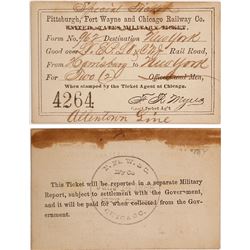 Special Ticket
Pittsburgh, Fort Wayne and Chicago Railway Co.
UNITED STATES MILITARY TICKET.
Form No. Destination New York
Good over Rail Road,
From Harrisburg to New York
For Two (2) Officers and Men,
When stamped by the Ticket Agent at Chicago.
4264
F. R. Myers
Gen'l Ticket Ag't.
Allentown Line
This Ticket will be reported in a separate Military
Report, subject to settlement with the Government,
and it will be paid for when collected from the
Government.
CHICAGO.